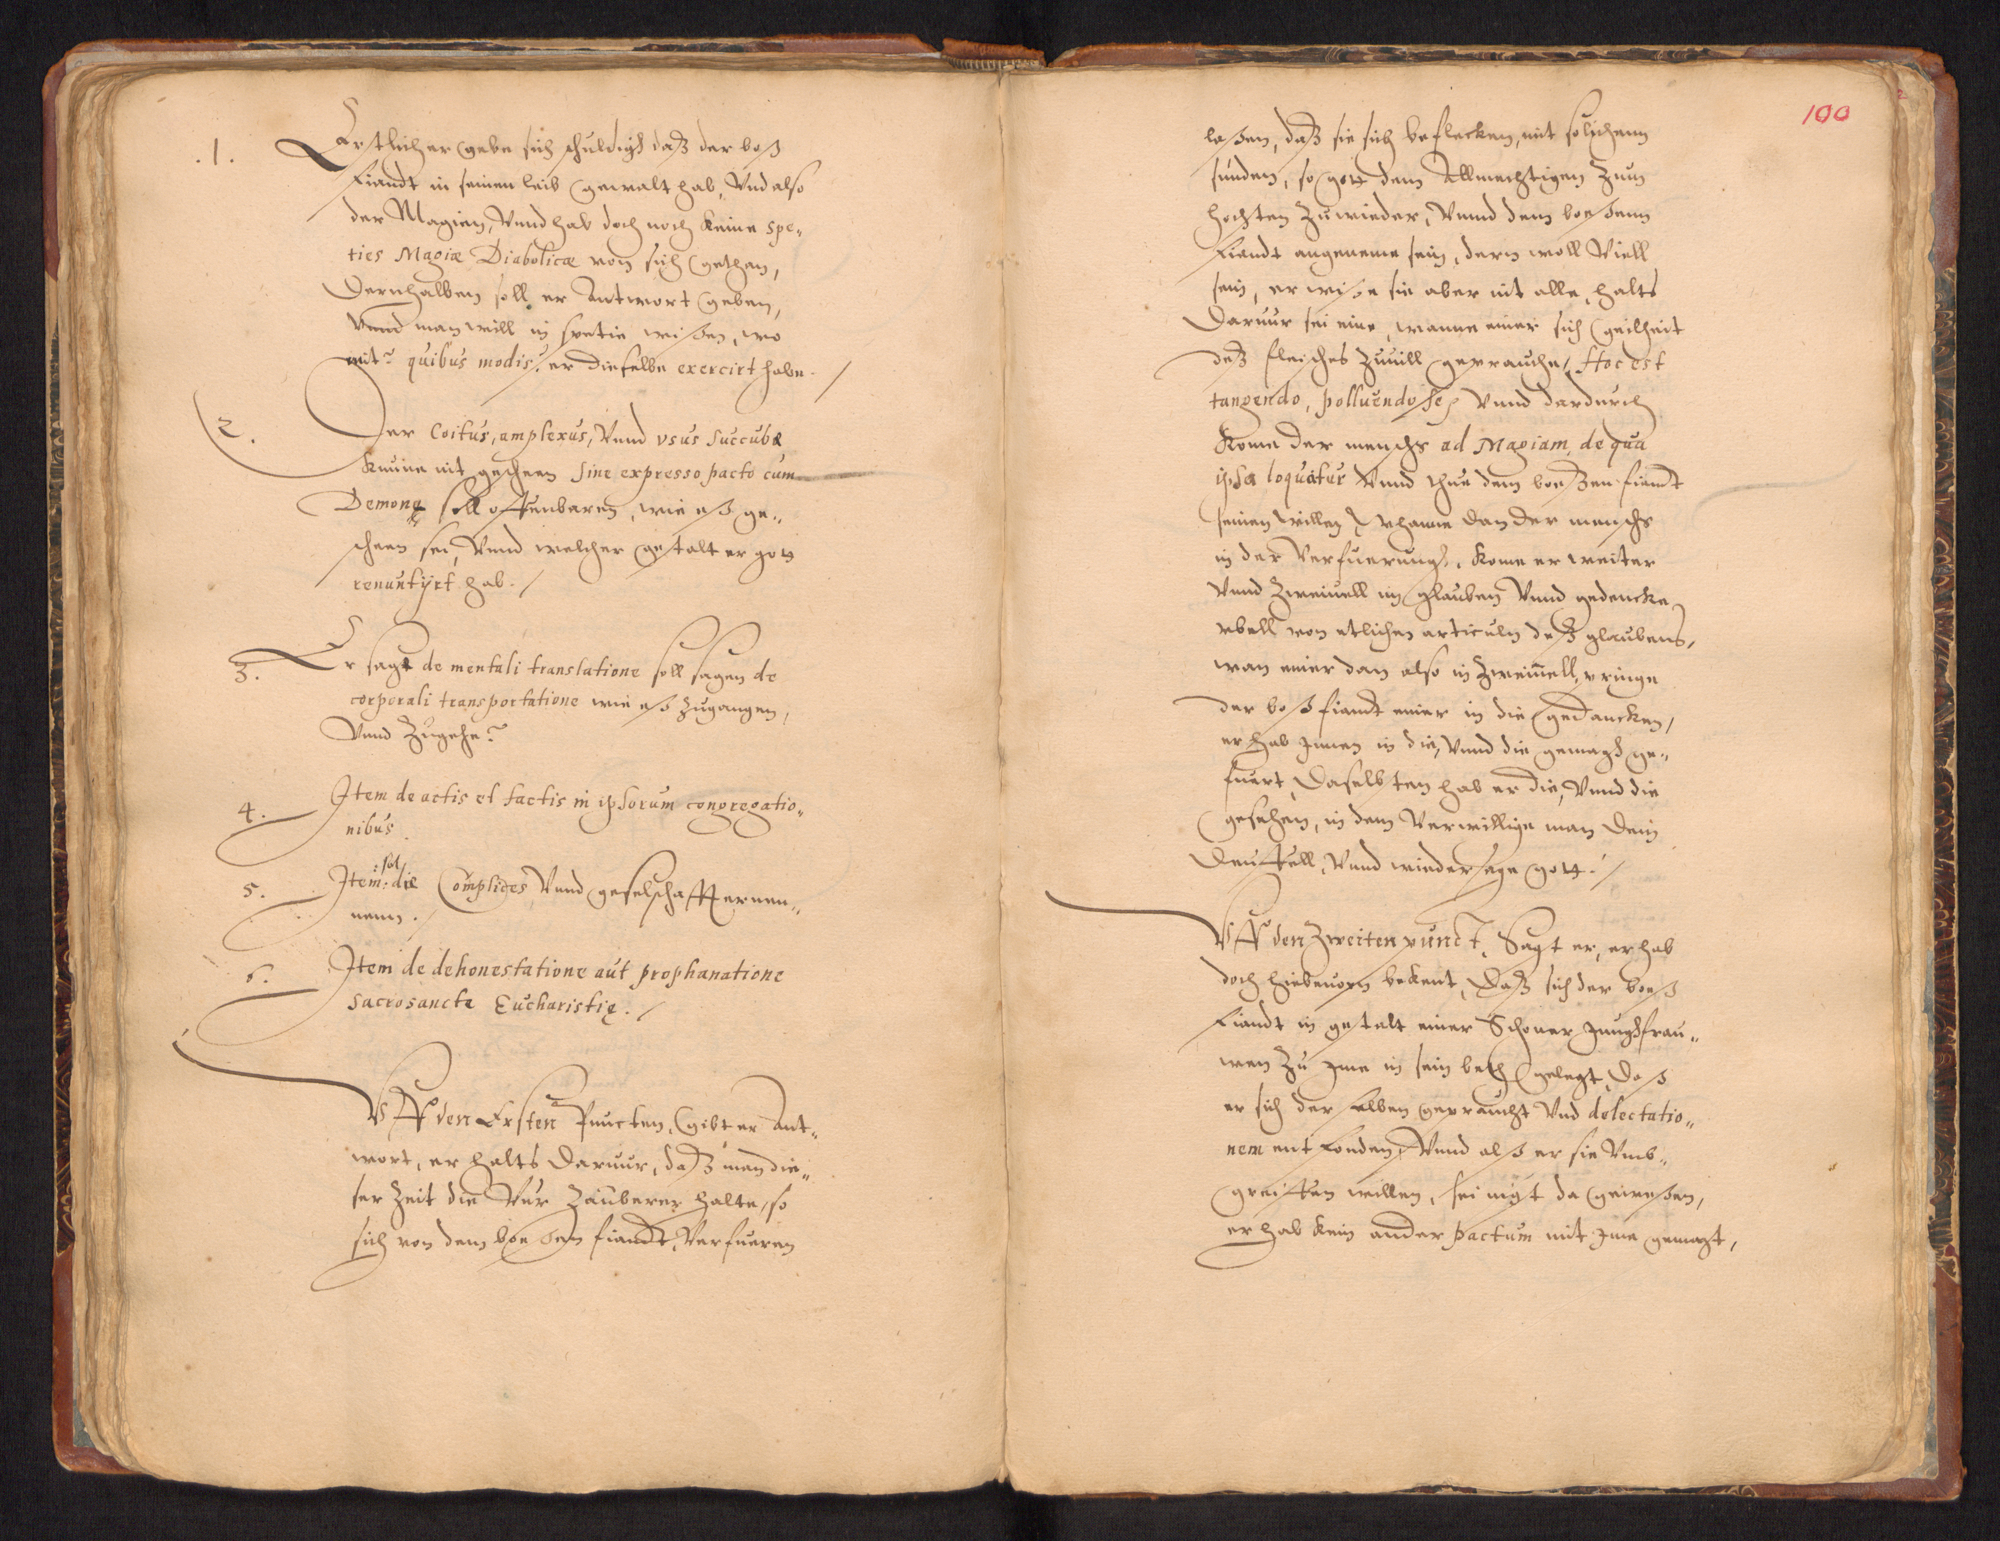 .1. Erstlich er gebe sich schuldigh daß der boß
Fiandt in seinen leib gewalt hab, Vnd also
der Magien, Vnnd hab doch noch keine spe„
ties Magiæ Diabolicæ von sich gethan,
Dernhalben soll er Antwort geben,
Vnnd man will in spetie wissen, wo
mit? quibus modis? er dieselbe exercirt habe. /
2. Der Coitus, amplexus, Vnnd vsus Succubæ
kunne nit gescheen sine expresso pacto cum
Demone soll offenbaren, wie eß ge„
scheen sei, Vnnd welcher gestalt er gott
renuntijrt hab. /
3. Er sagt de mentali translatione soll sagen de
corporali transportatione wie eß zugangen,
Vnnd zugehe?
4. Item de actis et factis in ipsorum congregatio„
nibus.
5. Item: sol die Complices Vnnd geselschafft ernen„
nenn. /
6. Item de dehonestatione aut prophanatione
sacrosanctæ Eucharistię. /
Vff den Ersten Puncten, gibt er Ant„
wort, er halts daruur, daß man die„
ser zeit die Vur Zauberer halte, so
sich von dem boesen fiandt, Verfueren
100
lassen, daß sie sich beflecken, mit solichenn
sunden, so gott dem Allmechtigen zum
hochsten zuwieder, Vnnd dem boesenn
Fiandt angeneme sein, dern woll Viell
sein, er wisse sie aber nit alle, halts
daruur sei eine, wanne einer sich geilheit
deß fleisches zuuill geprauche, Hoc est
tangendo, polluendo se, Vnnd dardurch
kome der menschs ad Magiam, de qua
ipsa loquatur Vnnd thue dem boeßen fiandt
seinen willen, whanne dan der menschs
in der Verfuerungh, kome er weiter
Vnnd zweiuell im glauben Vnnd gedencke
vbell von etlichen articuln deß glaubens,
wan einer dan also in zweiuell, pringe
der boß fiandt einer in die gedancken,
er hab Innen in die, Vnnd die gemagh ge„
fuert, daselbsten hab er die, Vnnd die
gesehen, in dem Verwillige man dem
Deuffell, Vnnd wiedersage gott. /
Vff den Zweiten punct, Sagt er, er hab
doch hiebeuorn bekent, daß sich der boeß
Fiandt in gestalt einer Schoner Junghfrau„
wen zu Ime in sein beth gelegt, daß
er sich der selben gepraucht Vnd delectatio„
nem entfonden, Vnnd alß er sie Vmb„
greiffen willen, sei nigt da gewesen,
er hab kein ander pactum mit Ime gemagt,